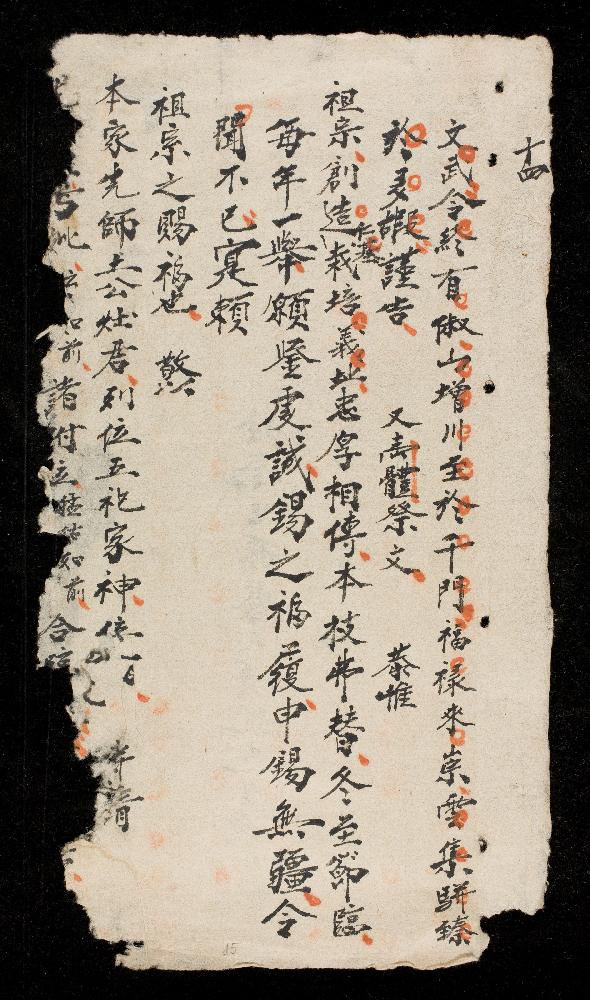 十四
文武令終有俶山增川至於千門福祿來崇雲集駢臻
於多嘏謹告 又高體祭文 恭惟
祖宗創造丕基栽培義址忠厚相傳本枝弗替冬至節臨
每年一舉願鑒虔誠錫之福履申錫無疆令
聞不已寔賴
祖宗之賜福也 敬
本家先師土公灶君列位五祀家神 日
如前諸付 如前合